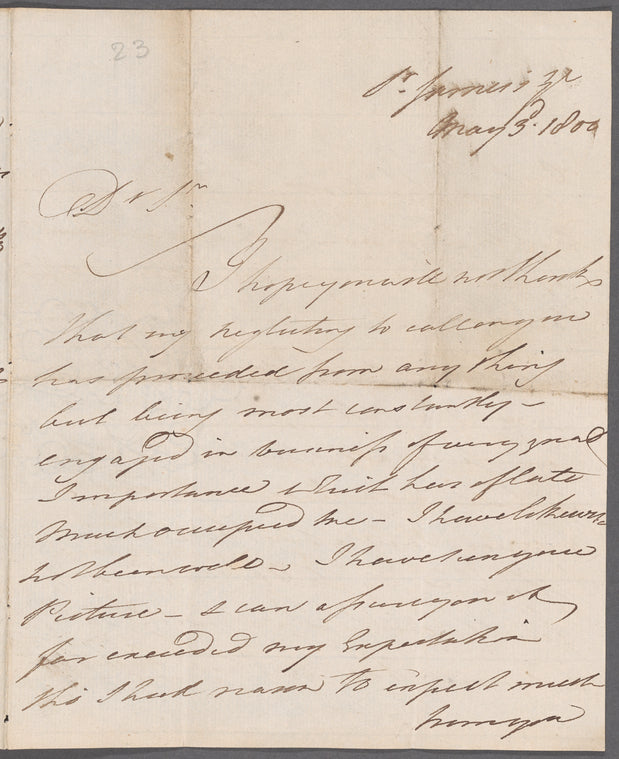 23
St. James's Sqr
May 3d. 1800
Dr Sir
I hope you will not think
that my neglecting to call on you
has proceeded from any thing
but being most constantly -
engaged in business of very great
Importance which has of late
Much occupied me - I have likewise
not been well - I have seen your
Picture - & can assure you it
far exceeded my Expectation
tho I had reason to expect much
from you